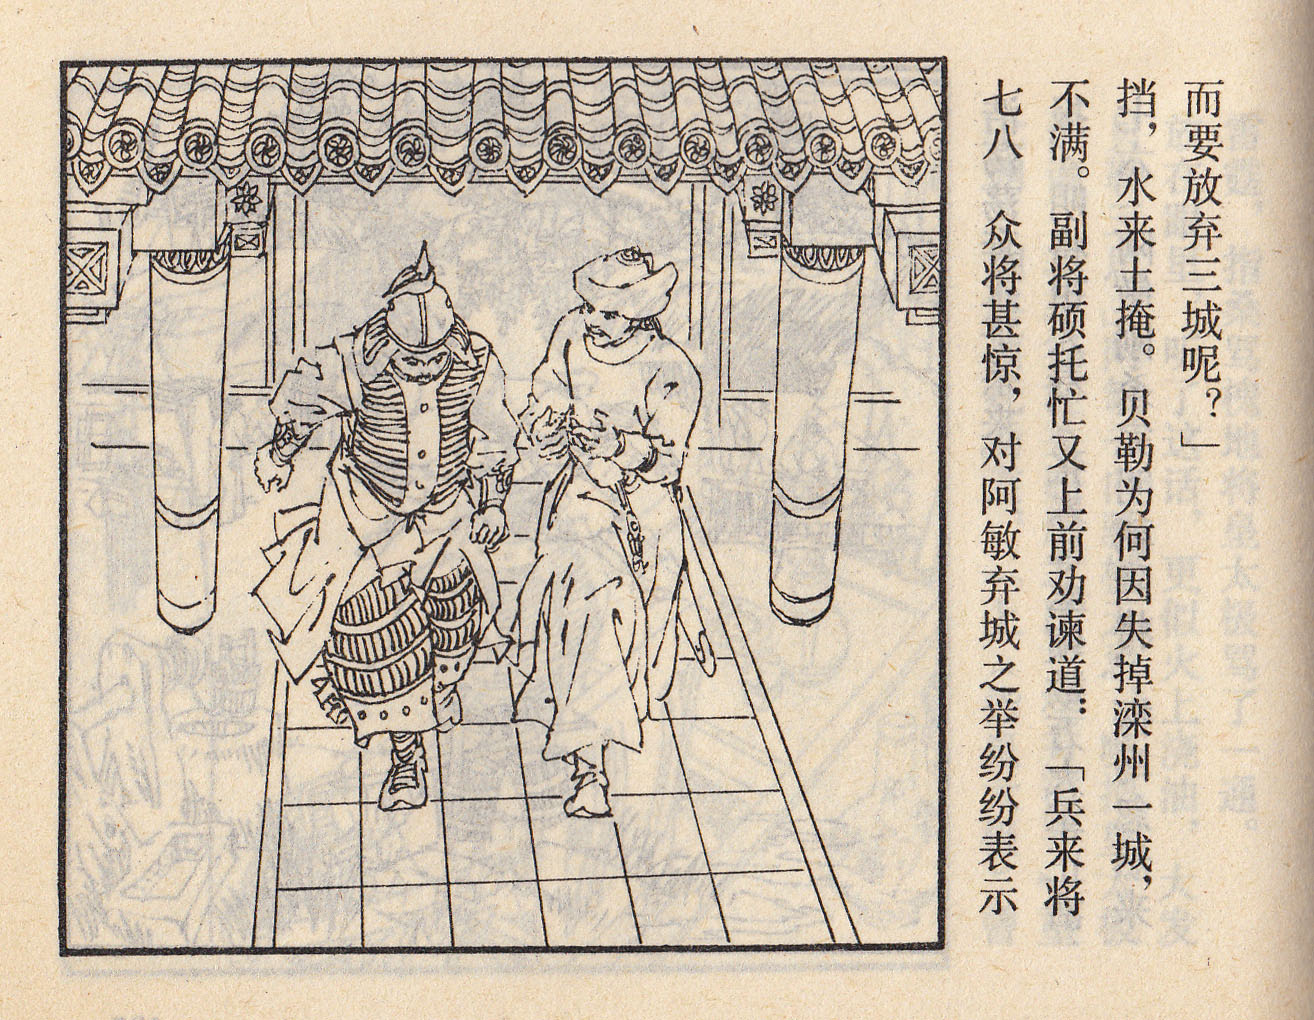 七八 众将甚惊，对阿敏弃城之举纷纷表示
不满。副将硕托忙又上前劝谏道：「兵来将
挡，水来土掩。贝勒为何因失掉滦州一城，
而要放弃三城呢？」